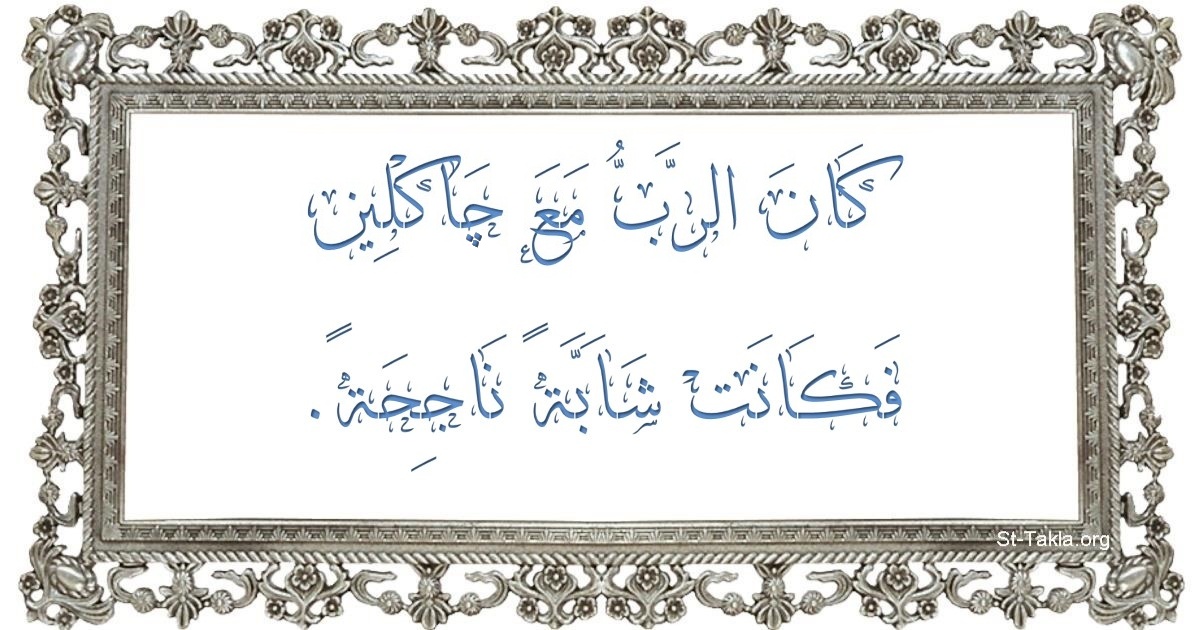 كَانَ الرَّبُّ مَعَ چَاكْلِين
فَكَانَتْ شَابَّةً نَاجِحَةً.
St-Takla.org